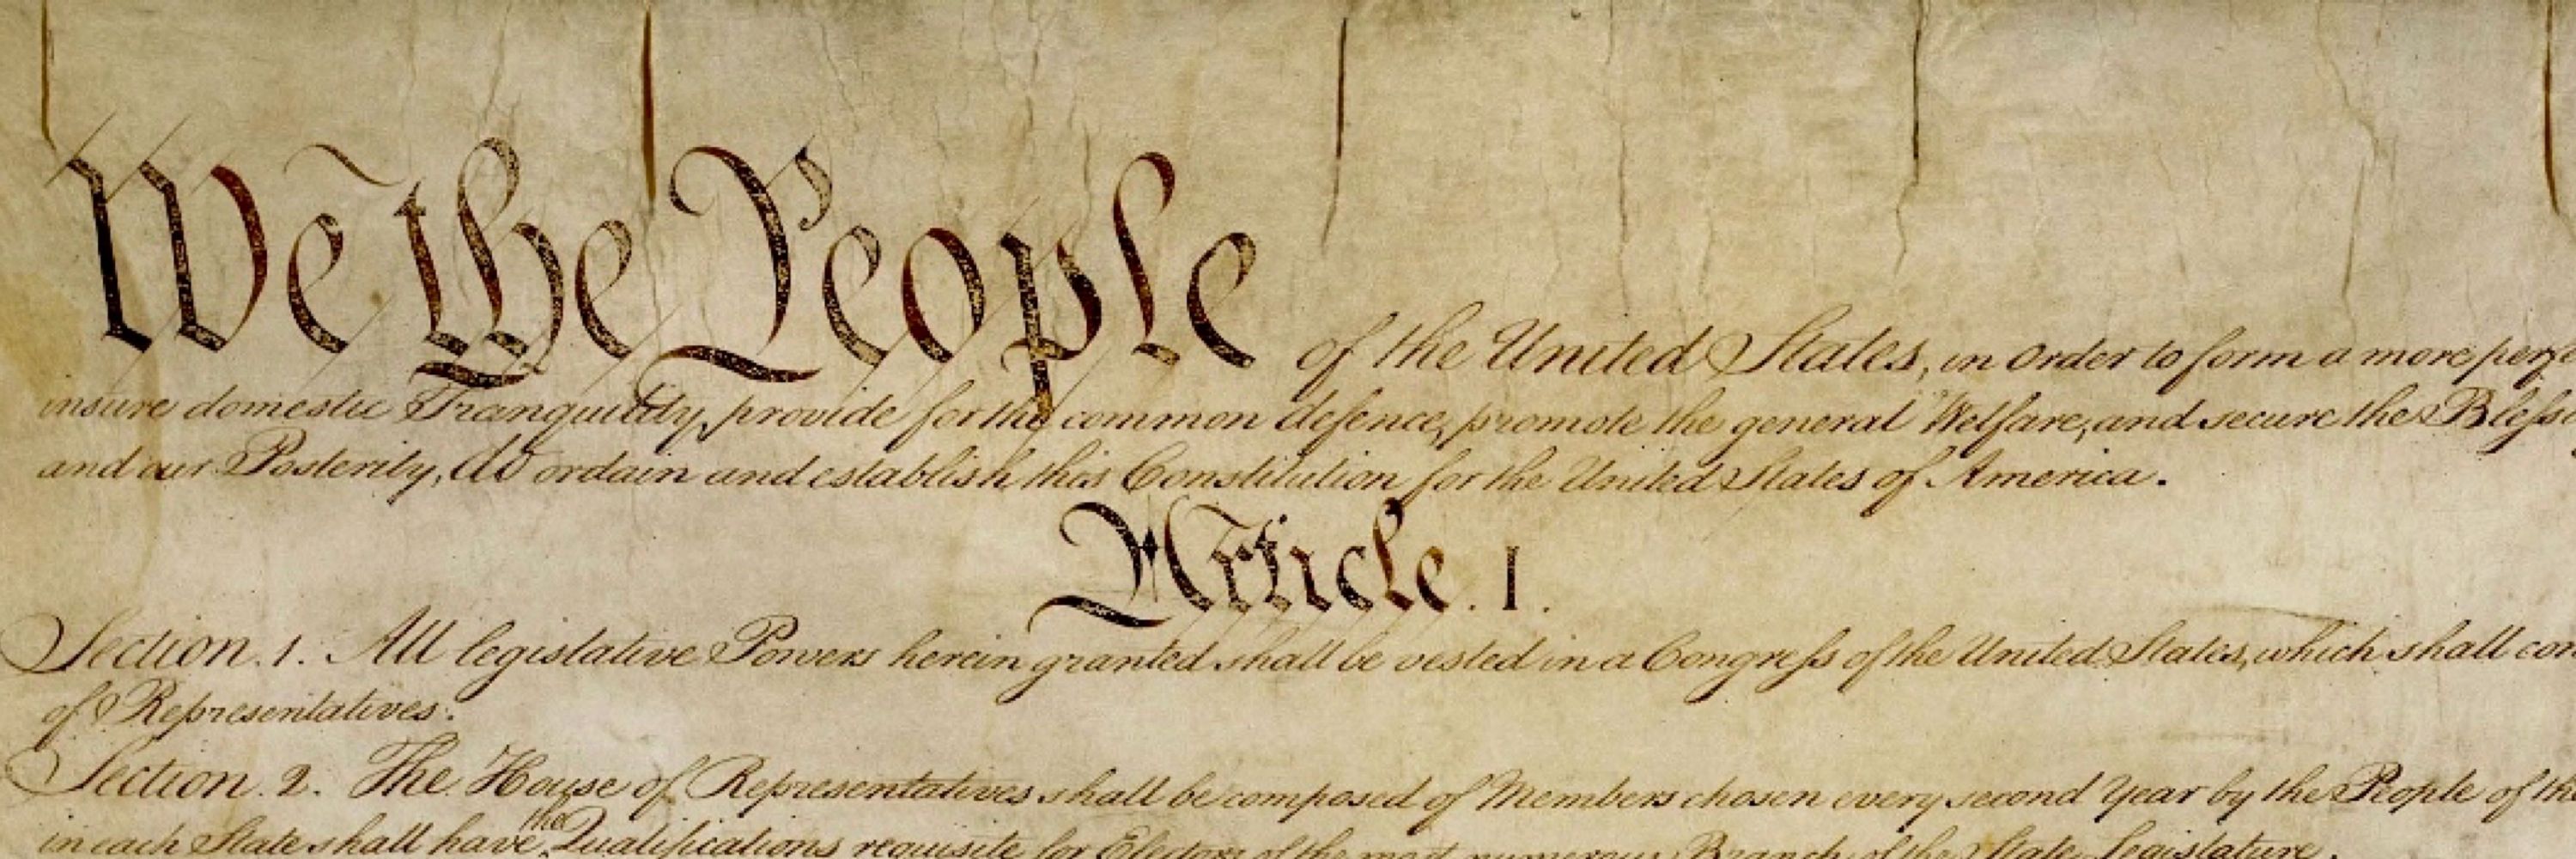 We the People of the United States, in Order to form a more perfe
insure domestic Tranquility, provide for the common defence, promote the general Welfare, and secure the Bless
and our Posterity, do ordain and establish this Constitution for the United States of America.
Article. I.
Section. 1. All legislative Powers herein granted shall be vested in a Congress of the United States, which shall con
of Representatives.
Section. 2. The House of Representatives shall be composed of Members chosen every second Year by the People of the
in each State shall have the Qualifications requisite for Electors of the most numerous Branch of the State Legislature.